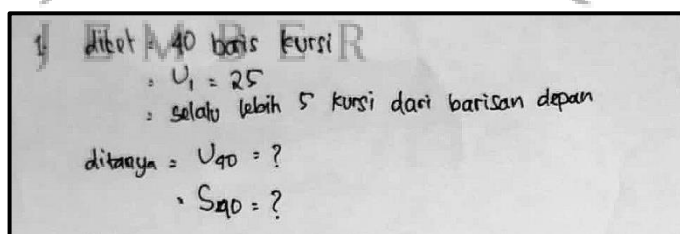 JEMBER
1. diket : 40 baris kursi
: U1 = 25
: selalu lebih 5 kursi dari barisan depan
ditanya = U40 = ?
: S40 = ?